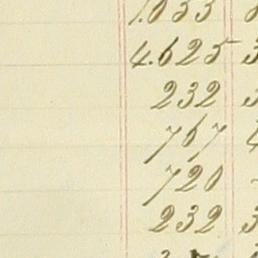 4.625
232
767
720
232